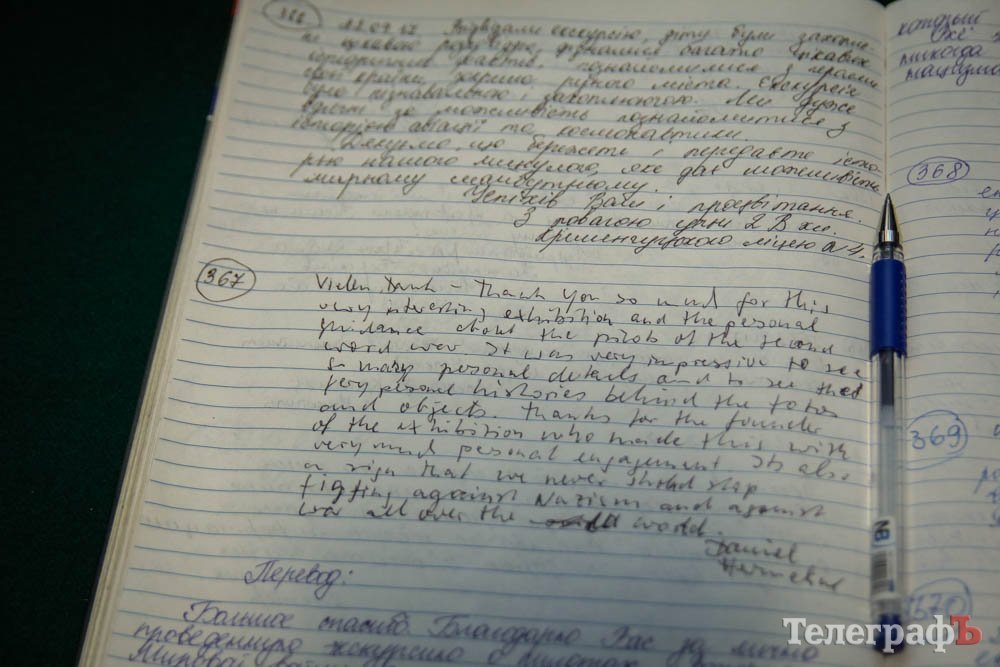 366 12.09.17 Відвідали екскурсію, діти були захопле-
ні цікавою розповіддю, дізналися багато цікавих
історичних фактів, познайомилися з героями
своєї країни, нашого рідного міста. Екскурсія
була пізнавальною і захоплюючою. Ми дуже
вдячні за можливість познайомитися з
історією авіації та космонавтики.
Дякуємо, що бережете і передаєте істо-
рію нашого минулого, яке дає можливість
мирному майбутньому.
Успіхів Вам і процвітання.
З повагою учні 2 В кл.
Кременчуцького ліцею №4.
367
Vielen Dank – Thank you so much for this
very interesting exhibition and the personal
guidance about the pilots of the second
word war. It was very impressive to see
so many personal details and to see the
very personal histories behind the fotos
and objects. Thanks for the founder
of the exhibition who made this with
very much personal engagement. Its also
a sign that we never should stop
figting against Nazism and against
war all over the world.
Daniel
Перевод:
Большое спасибо. Благодарю Вас за лично
проведенную экскурсию о пилотах
Мировой
который
никогда
368
369
370
NB
ТелеграфЪ